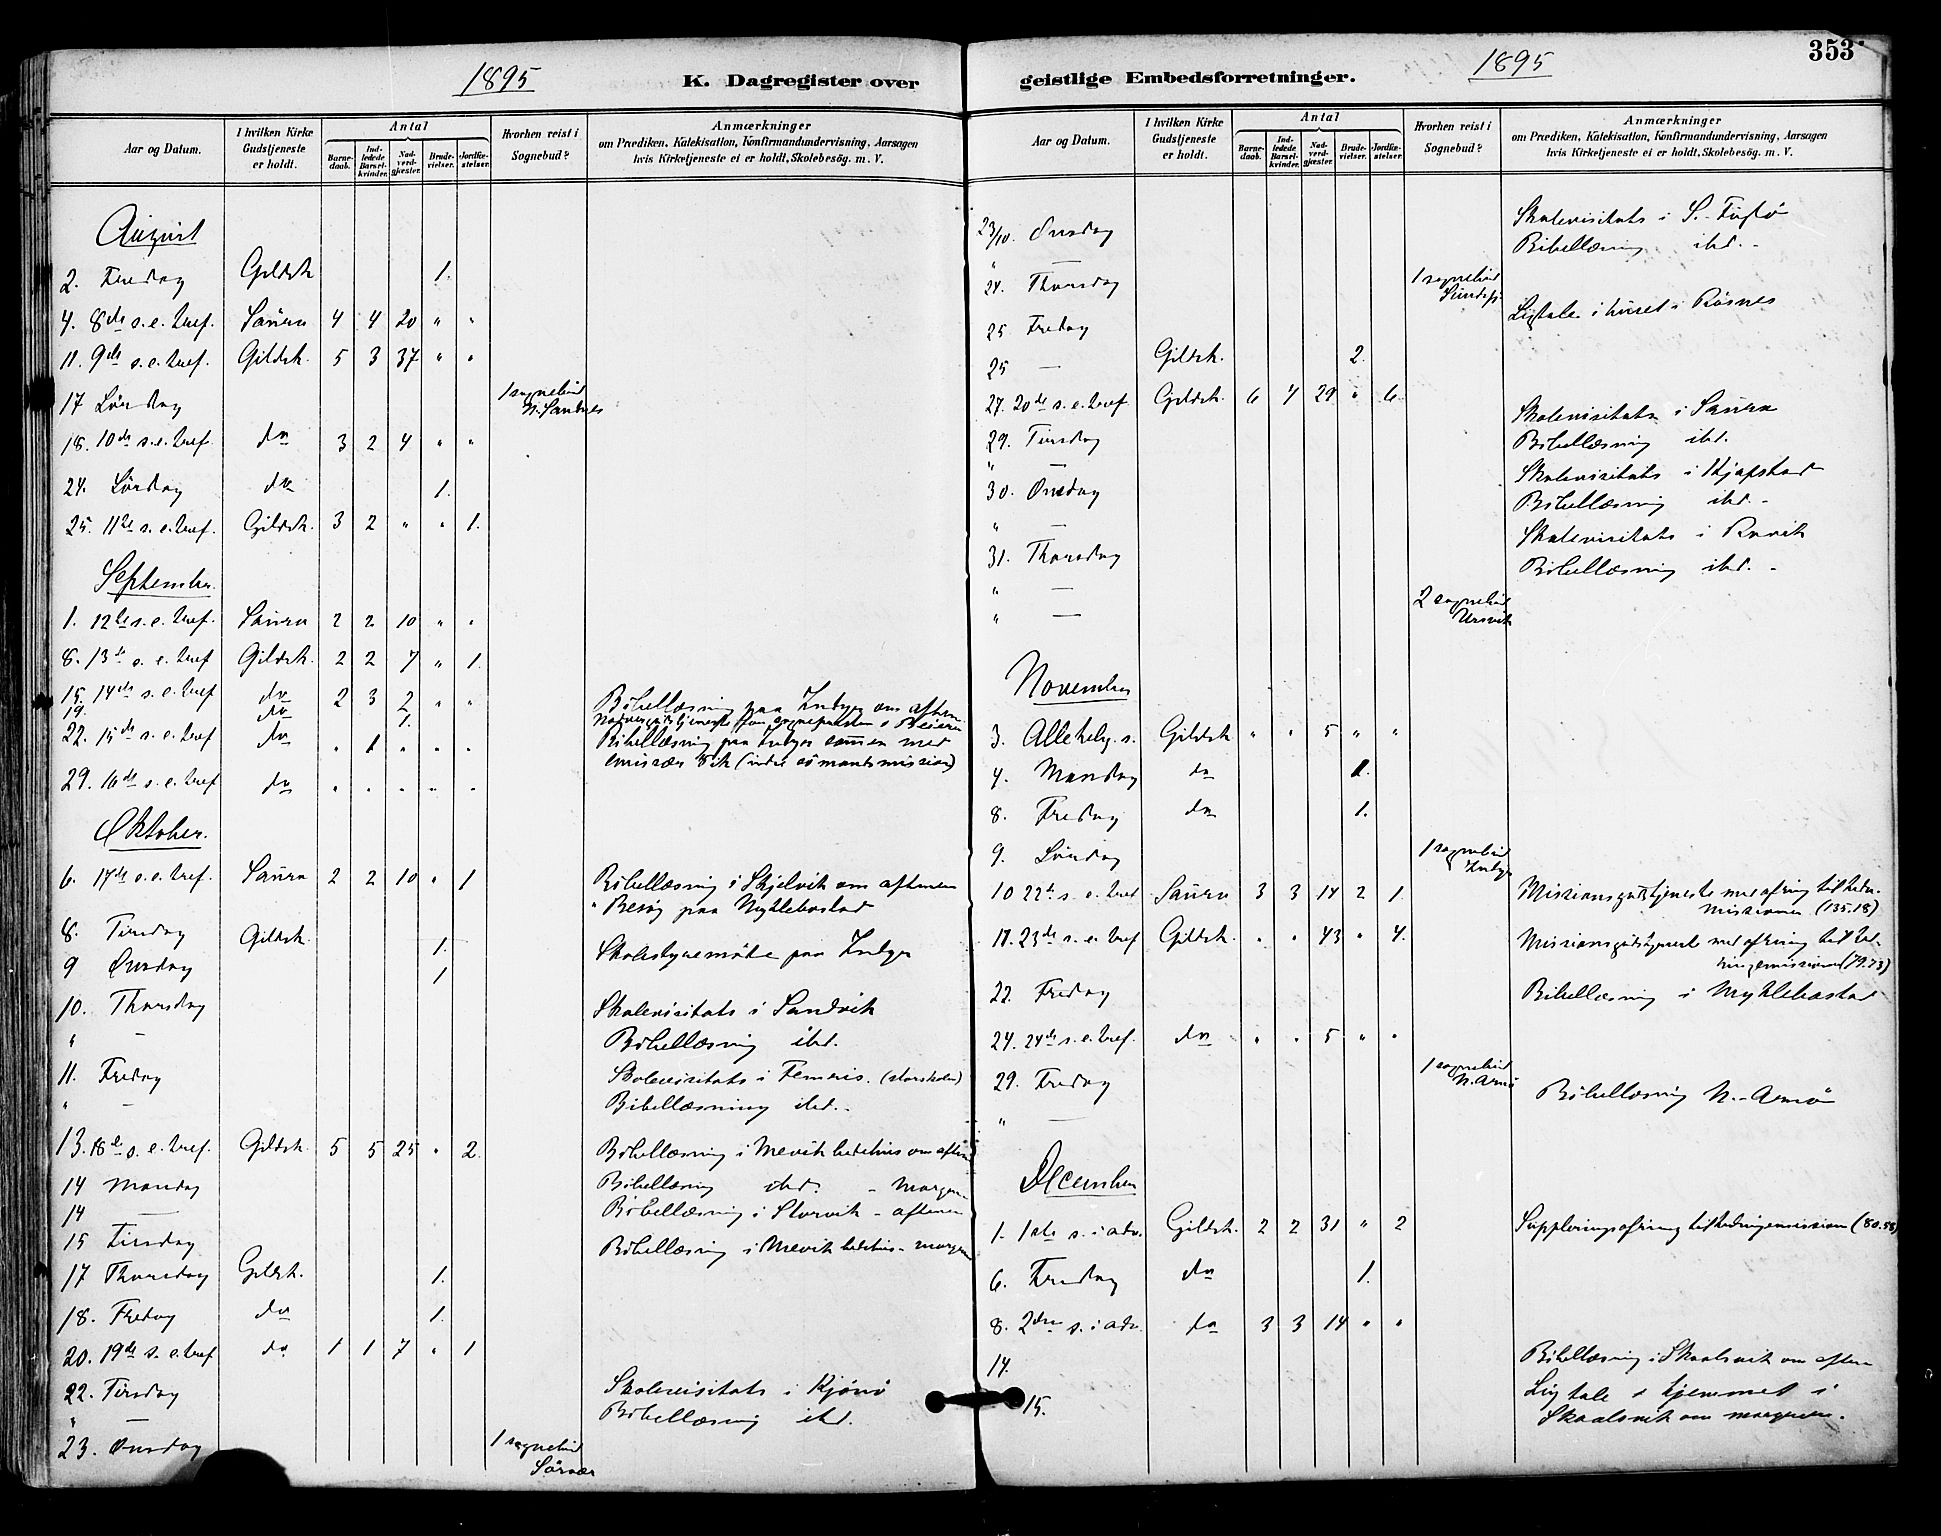 1895 K. Dagregister over
Aar og Datum. I hvilken Kirke Gudstjeneste er holdt. Antal Barnedaab. Indledede Barselkvinder. Nadverdgjæster. Brudevielser. Jordfæstelser. Hvorhen reist i Sognebud? Anmærkninger om Prædiken, Katekisation, Konfirmandundervisning, Aarsagen hvis Kirketjeneste ei er holdt, Skolebesøg. m. V.
August
2. Fredag Gildsk. 1.
4. 8de s. e. tref. Saura 4 4 20 " "
11. 9de s. e. tref. Gildsk. 5 3 37 " "
17 Lørdag 1 sognebud N. Sandnes
18. 10de s. e. tref. do 3 2 4 " "
24. Lørdag do 1.
25. 11te s. e. tref. Gildsk. 3 2 " " 1.
September.
1. 12te s. e. tref. Saura 2 2 10 " "
8. 13de s. e. tref Gildsk. 2 2 7 " 1.
15. 14de s. e. tref do 2 3 2 " " Bibellæsning paa Inbyg om aftn.
19. do 1.
22. 15de s. e. tref do " 1 " " " Bibellæsning paa Inbyg sammen med
emissær (indre sømandsmission)
29. 16de s. e. tref do " " " " "
Oktober.
6. 17de s. e. tref. Saura 2 2 10 " 1 Bibellæsning i Skjelvik om aftenen
" Besøg paa Myklebostad
8. Tirsdag Gildsk. 1.
9 Onsdag 1 Skolestyremøte paa Inbyg
10. Thorsdag Skolevisitats i Sandvik
" — Bibellæsning ibd.
11. Fredag Skolevisitats i Femris. (storskolen)
" — Bibellæsning ibd. -
13. 18de s. e. tref. Gildsk. 5 5 25 " 2. Bibellæsning i Mevik bedehus om aftnen
14 Mandag Bibellæsning ibd. - morgen
14 — Bibellæsning i Storvik - aftenen
15 Tirsdag Bibellæsning i Mevik bedehus - morgen
17 Thorsdag Gildsk. 1.
18. Fredag do 1.
20. 19de s. e. tref do 1 1 7 " 1
22. Tirsdag Skolevisitats i Kjønø
" — Bibellæsning ibd.
23. Onsdag 1 sognebud Sørnæs
geistlige Embedsforretninger. 1895 353
Aar og Datum. I hvilken Kirke Gudstjeneste er holdt. Antal Barnedaab. Indledede Barselkvinder. Nadverdgjæster. Brudevielser. Jordfæstelser. Hvorhen reist i Sognebud? Anmærkninger om Prædiken, Katekisation, Konfirmandundervisning, Aarsagen hvis Kirketjeneste ei er holdt, Skolebesøg. m. V.
23/10. Onsdag Skolevisitats i S. Fuglø
" — Bibellæsning ibd. -
24. Thorsdag 1 sognebud
25 Fredag Ligtale i huset i Røsnes
25 — Gildsk. 2.
27. 20de s. e. tref Gildsk. 6 4 29 " 6.
29. Tirsdag Skolevisitats i Saura
" — Bibellæsning ibd.
30. Onsdag Skolevisitats i Kjøpstad
" — Bibellæsning ibd. -
31. Thorsdag Skolevisitats i
" — Bibellæsning ibd. -
" — 2 sognebud
November
3. Allehelg. s. Gildsk " " 5 " "
4. Mandag do 1.
8. Fredag do 1.
9. Lørdag 1 sognebud Inbyg
10 22de s. e. tref Saura 3 3 14 2 1. Missionsgudstjeneste med ofring til hedn.
missionen (135.18)
17. 23de s. e. tref Gildsk. " " 43 " 4. Missionsgudstjeneste med ofring til hed-
ningemissionen (79.73)
22. Fredag Bibellæsning i Myklebostad
24. 24de s. e. tref. do " " 5 " "
29. Fredag 1 sognebud N. Arnø
" — Bibellæsning N. Arnø
December
1. 1ste s. i adv. Gildsk. 2 2 31 " 2 Suppleringsofring til hedningemission (80.58)
6. Fredag do 1.
8. 2den s. i adv. do 3 3 14 " "
14. Bibellæsning i Skaalsvik om aften
15. Ligtale i hjemmet i
Skaalsvik om morgenen.